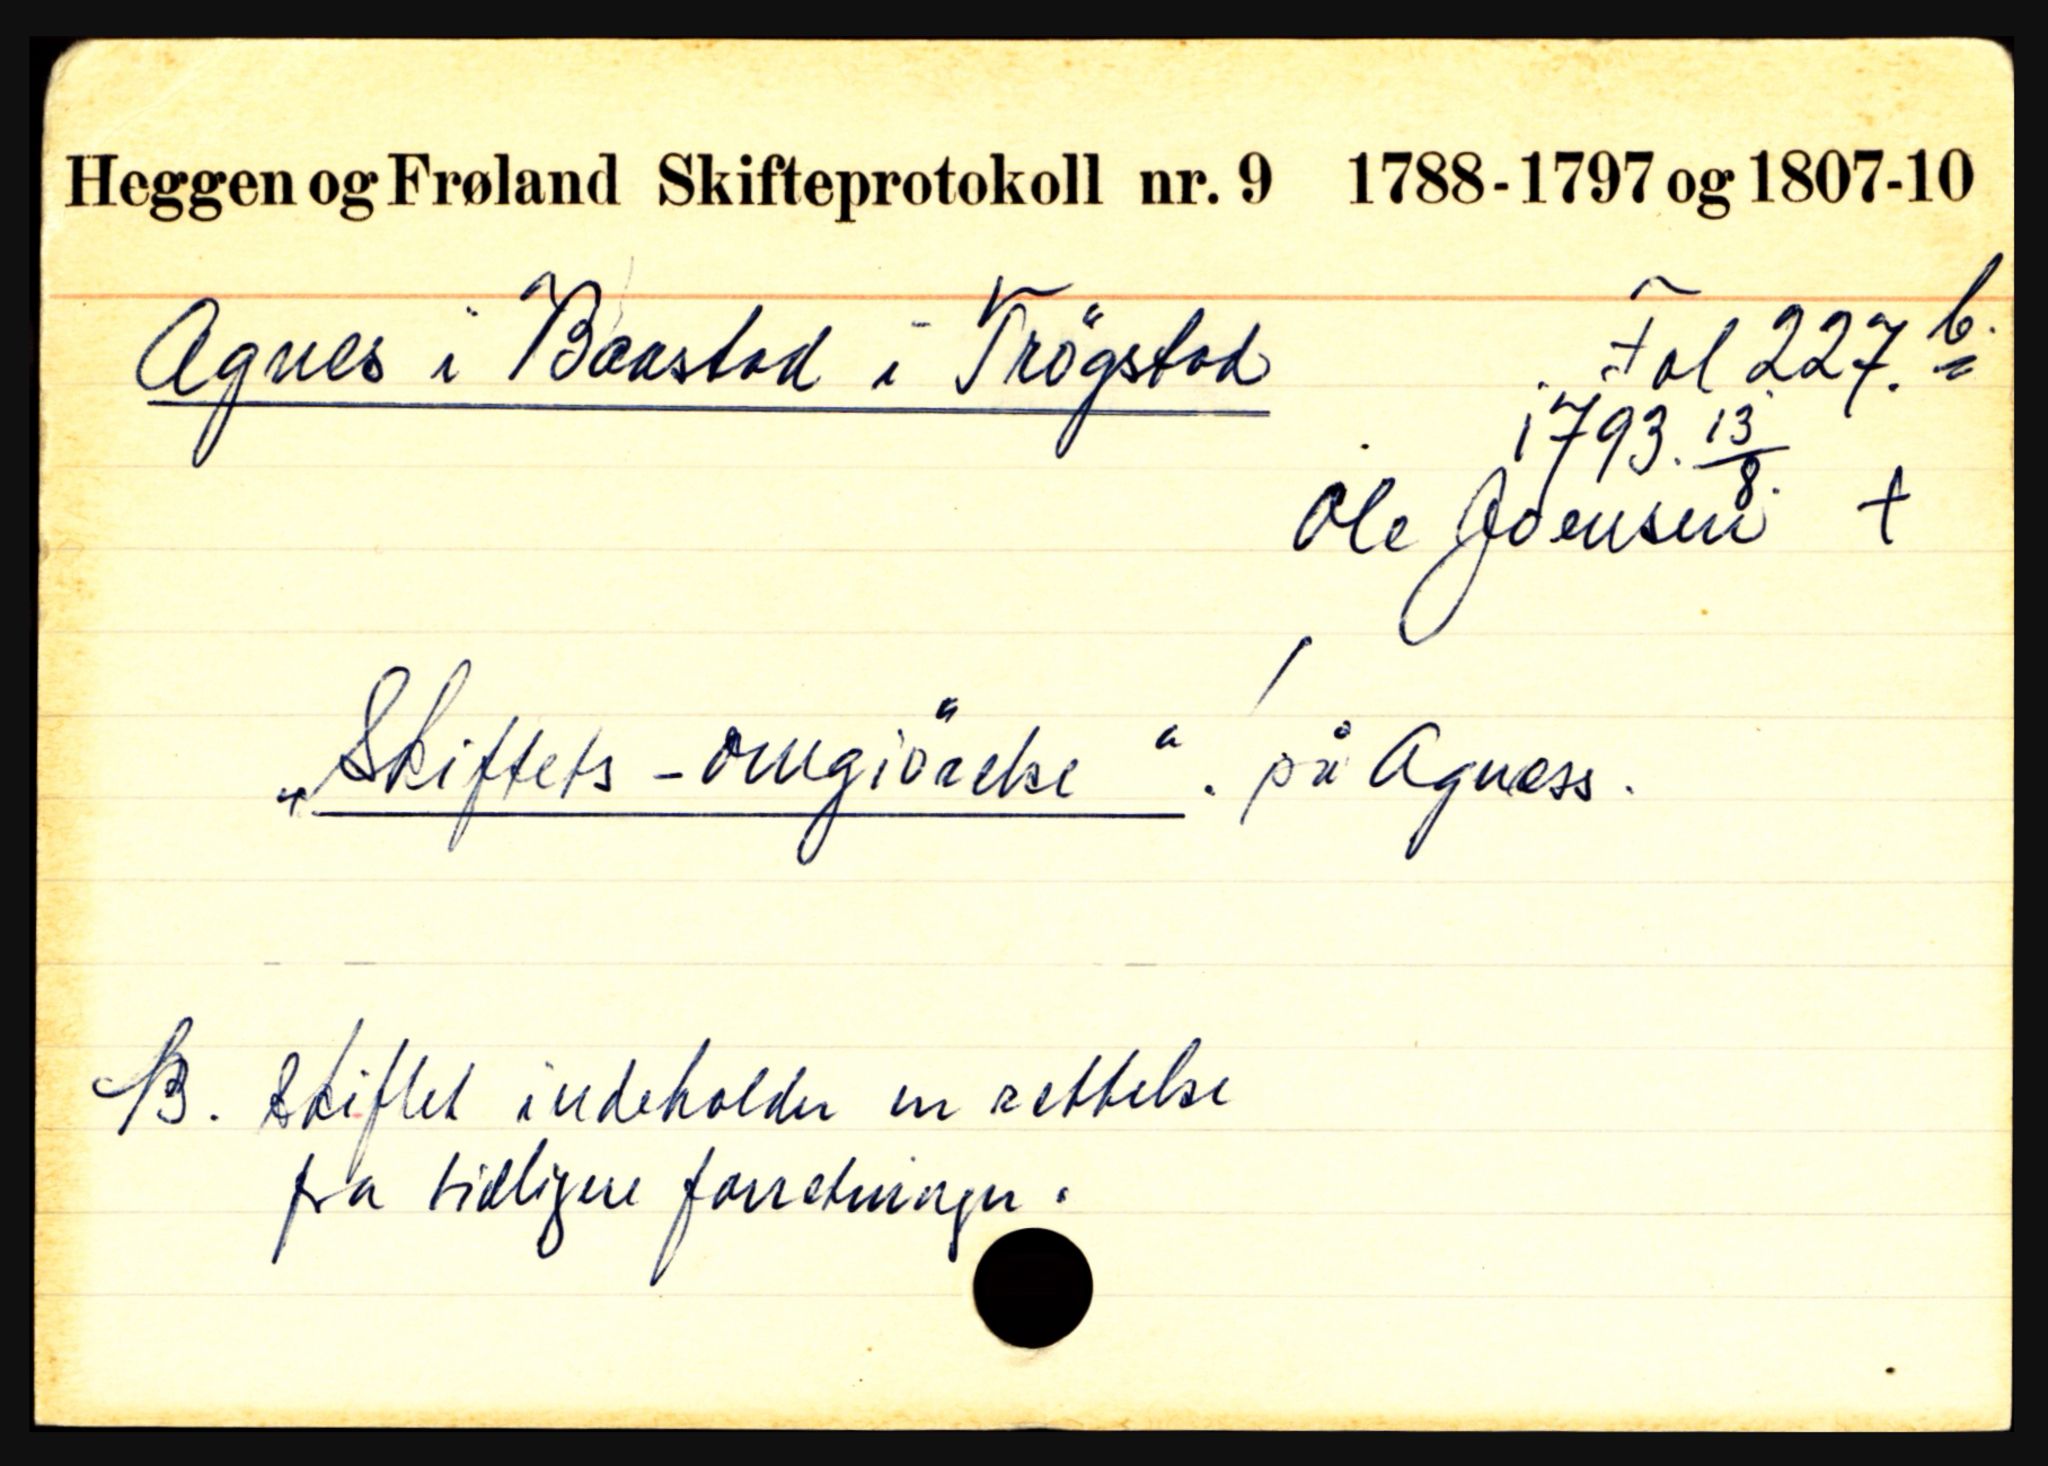 Heggen og Frøland Skifteprotokoll nr. 9 1788-1797 og 1807-10
Agnes i Baastad i Trögstad Fol 227. b.
1793. 13/8.
Ole Joensen +
„Skiftets-omgiörelse“. på Agness.
NB. Skiftet indeholder en rettelse
fra tidligere forretninger.